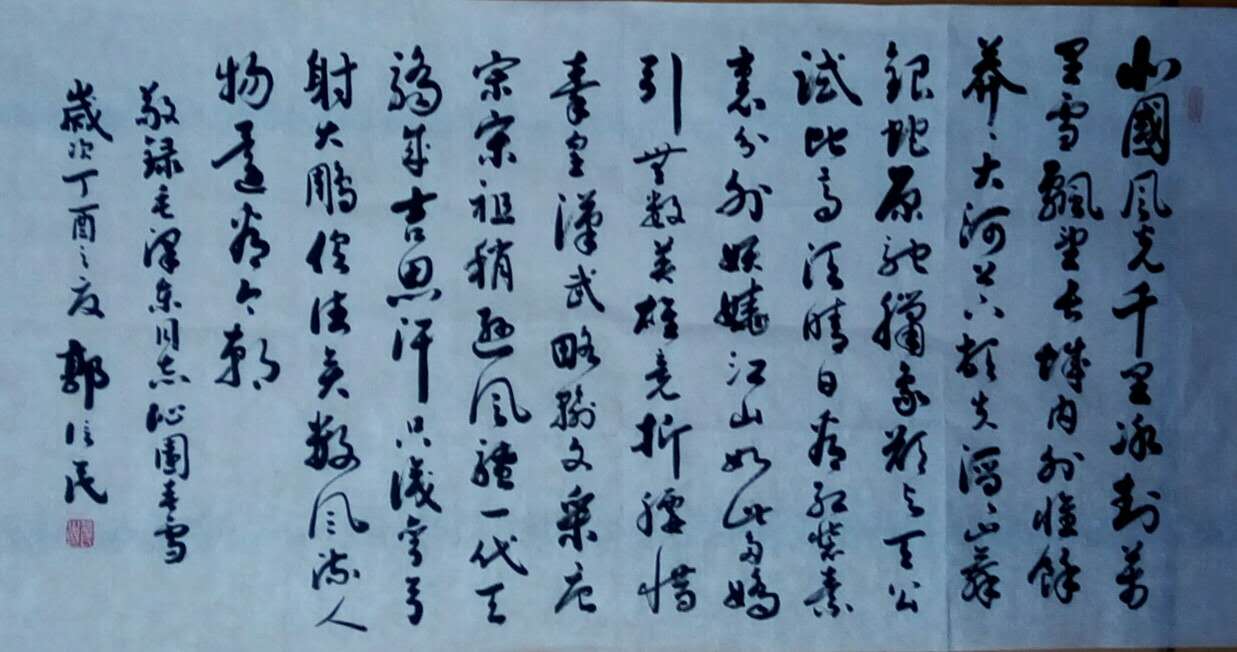 北國风光千里冰封萬
里雪飄望长城内外惟餘
莽、大河上下顿失滔、山舞
銀蛇原馳臘象欲与天公
試比高须晴日看红装素
裹分外妖娆江山如此多嬌
引無数英雄竞折腰惜
秦皇漢武略輸文采唐
宗宋祖稍遜风骚一代天
驕成吉思汗只識弯弓
射大鵰俱往矣数风流人
物還看今朝
敬録毛澤东同志沁園春雪
歲次丁酉之夏 郭信民